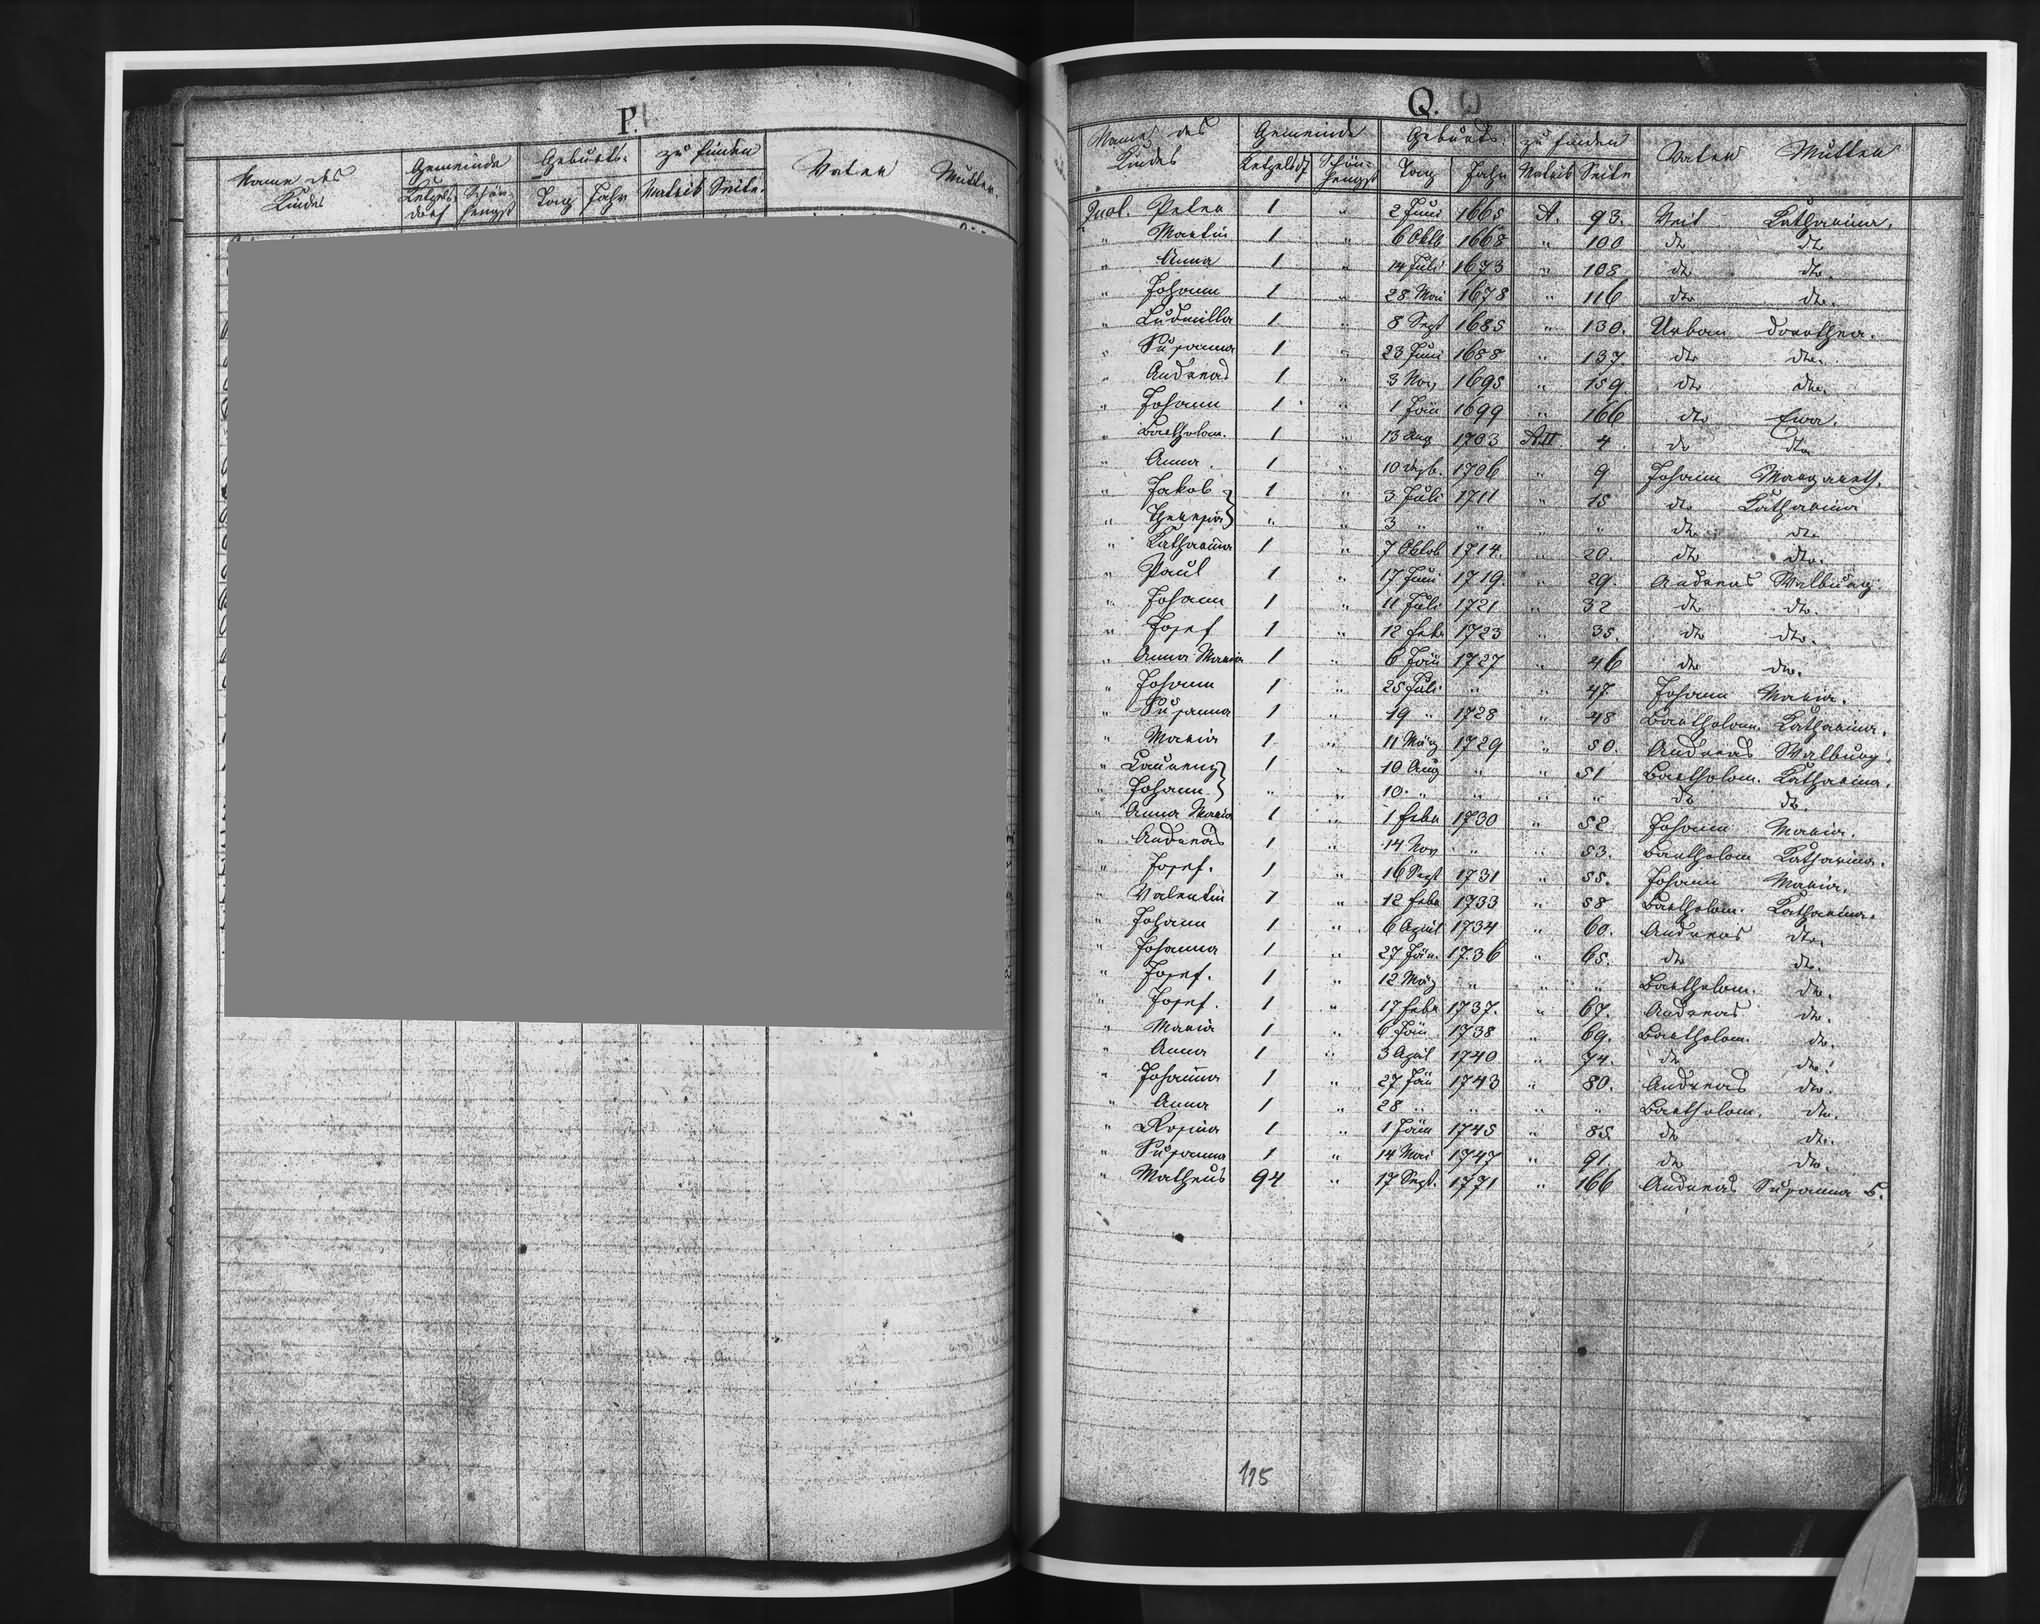 P.
Name des Kindes Gemeinde Geburts- zu finden Vater Mutter.
Ketzelsdorf Schönhengst Tag Jahr Matrik Seite.
Q.
Name des Kindes Gemeinde Geburts- zu finden Vater Mutter
Ketzelsdf Schönhengst Tag Jahr Matrik Seite
Peter 1 " 2 Juni 1665 A. 93. Veit Katharina.
" Martin 1 " 6 Oktb 1668 " 100 dto dto
" Anna 1 " 14 Juli 1673 " 108 dto dto.
" Johann 1 " 28 Mai 1678 " 116 dto dto.
" Ludmilla 1 " 8 Sept 1685 " 130. Urban Dorothea.
" Susanna 1 " 23 Juni 1688 " 137. dto dto.
" Andreas 1 " 3 Nov 1695 " 159. dto dto.
" Johann 1 " 1 Jän 1699 " 166 dto Ewa.
" Bartholom. 1 " 13 Aug 1703 AII 4. dto dto
" Anna. 1 " 10 Dezb. 1706 " 9 Johann Margareth.
" Jakob } 1 " 3 Juli 1711 " 15 dto Katharina
" Theresia } " " 3 " " " " dto dto
" Katharina 1 " 7 Oktob 1714. " 20. dto dto.
" Paul 1 " 17 Juni 1719. " 29. Andreas Walburg.
" Johann 1 " 11 Juli 1721 " 32 dto dto.
" Josef 1 " 12 Febr 1723 " 35. dto dto.
" Anna Maria 1 " 6 Jän 1727 " 46 dto dto.
" Johann 1 " 25 Juli " " 47 Johann Maria.
" Susanna 1 " 19 " 1728 " 48 Bartholom. Katharina.
" Maria 1 " 11 März 1729 " 50. Andreas Walburg.
" Laurenz } 1 " 10 Aug " " 51 Bartholom. Katharina.
" Johann } " " 10. " " " " dto dto.
" Anna Maria 1 " 1 Febr 1730 " 52 Johann Maria.
" Andreas 1 " 14 Nov " " 53. Bartholom Katharina.
" Josef. 1 " 16 Sept 1731 " 55. Johann Maria.
" Valentin 1 " 12 Febr 1733 " 58 Bartholom. Katharina.
" Johann 1 " 6 April 1734 " 60. Andreas dto.
" Johanna 1 " 27 Jän. 1736 " 65. dto dto.
" Josef. 1 " 12 März " " " Bartholom. dto.
" Josef. 1 " 17 Febr 1737. " 67. Andreas dto.
" Maria 1 " 6 Jän 1738 " 69. Bartholom. dto.
" Anna 1 " 3 April 1740 " 74. dto dto.
" Johanna 1 " 27 Jän 1743 " 80. Andreas dto.
" Anna 1 " 28 " " " " Bartholom. dto.
" Rosina 1 " 1 Jän 1745 " 85 dto dto.
" Susanna 1 " 14 Mai 1747 " 91. dto dto.
" Matheus 94 " 17 Sept. 1771 " 166 Andreas Susanna
115